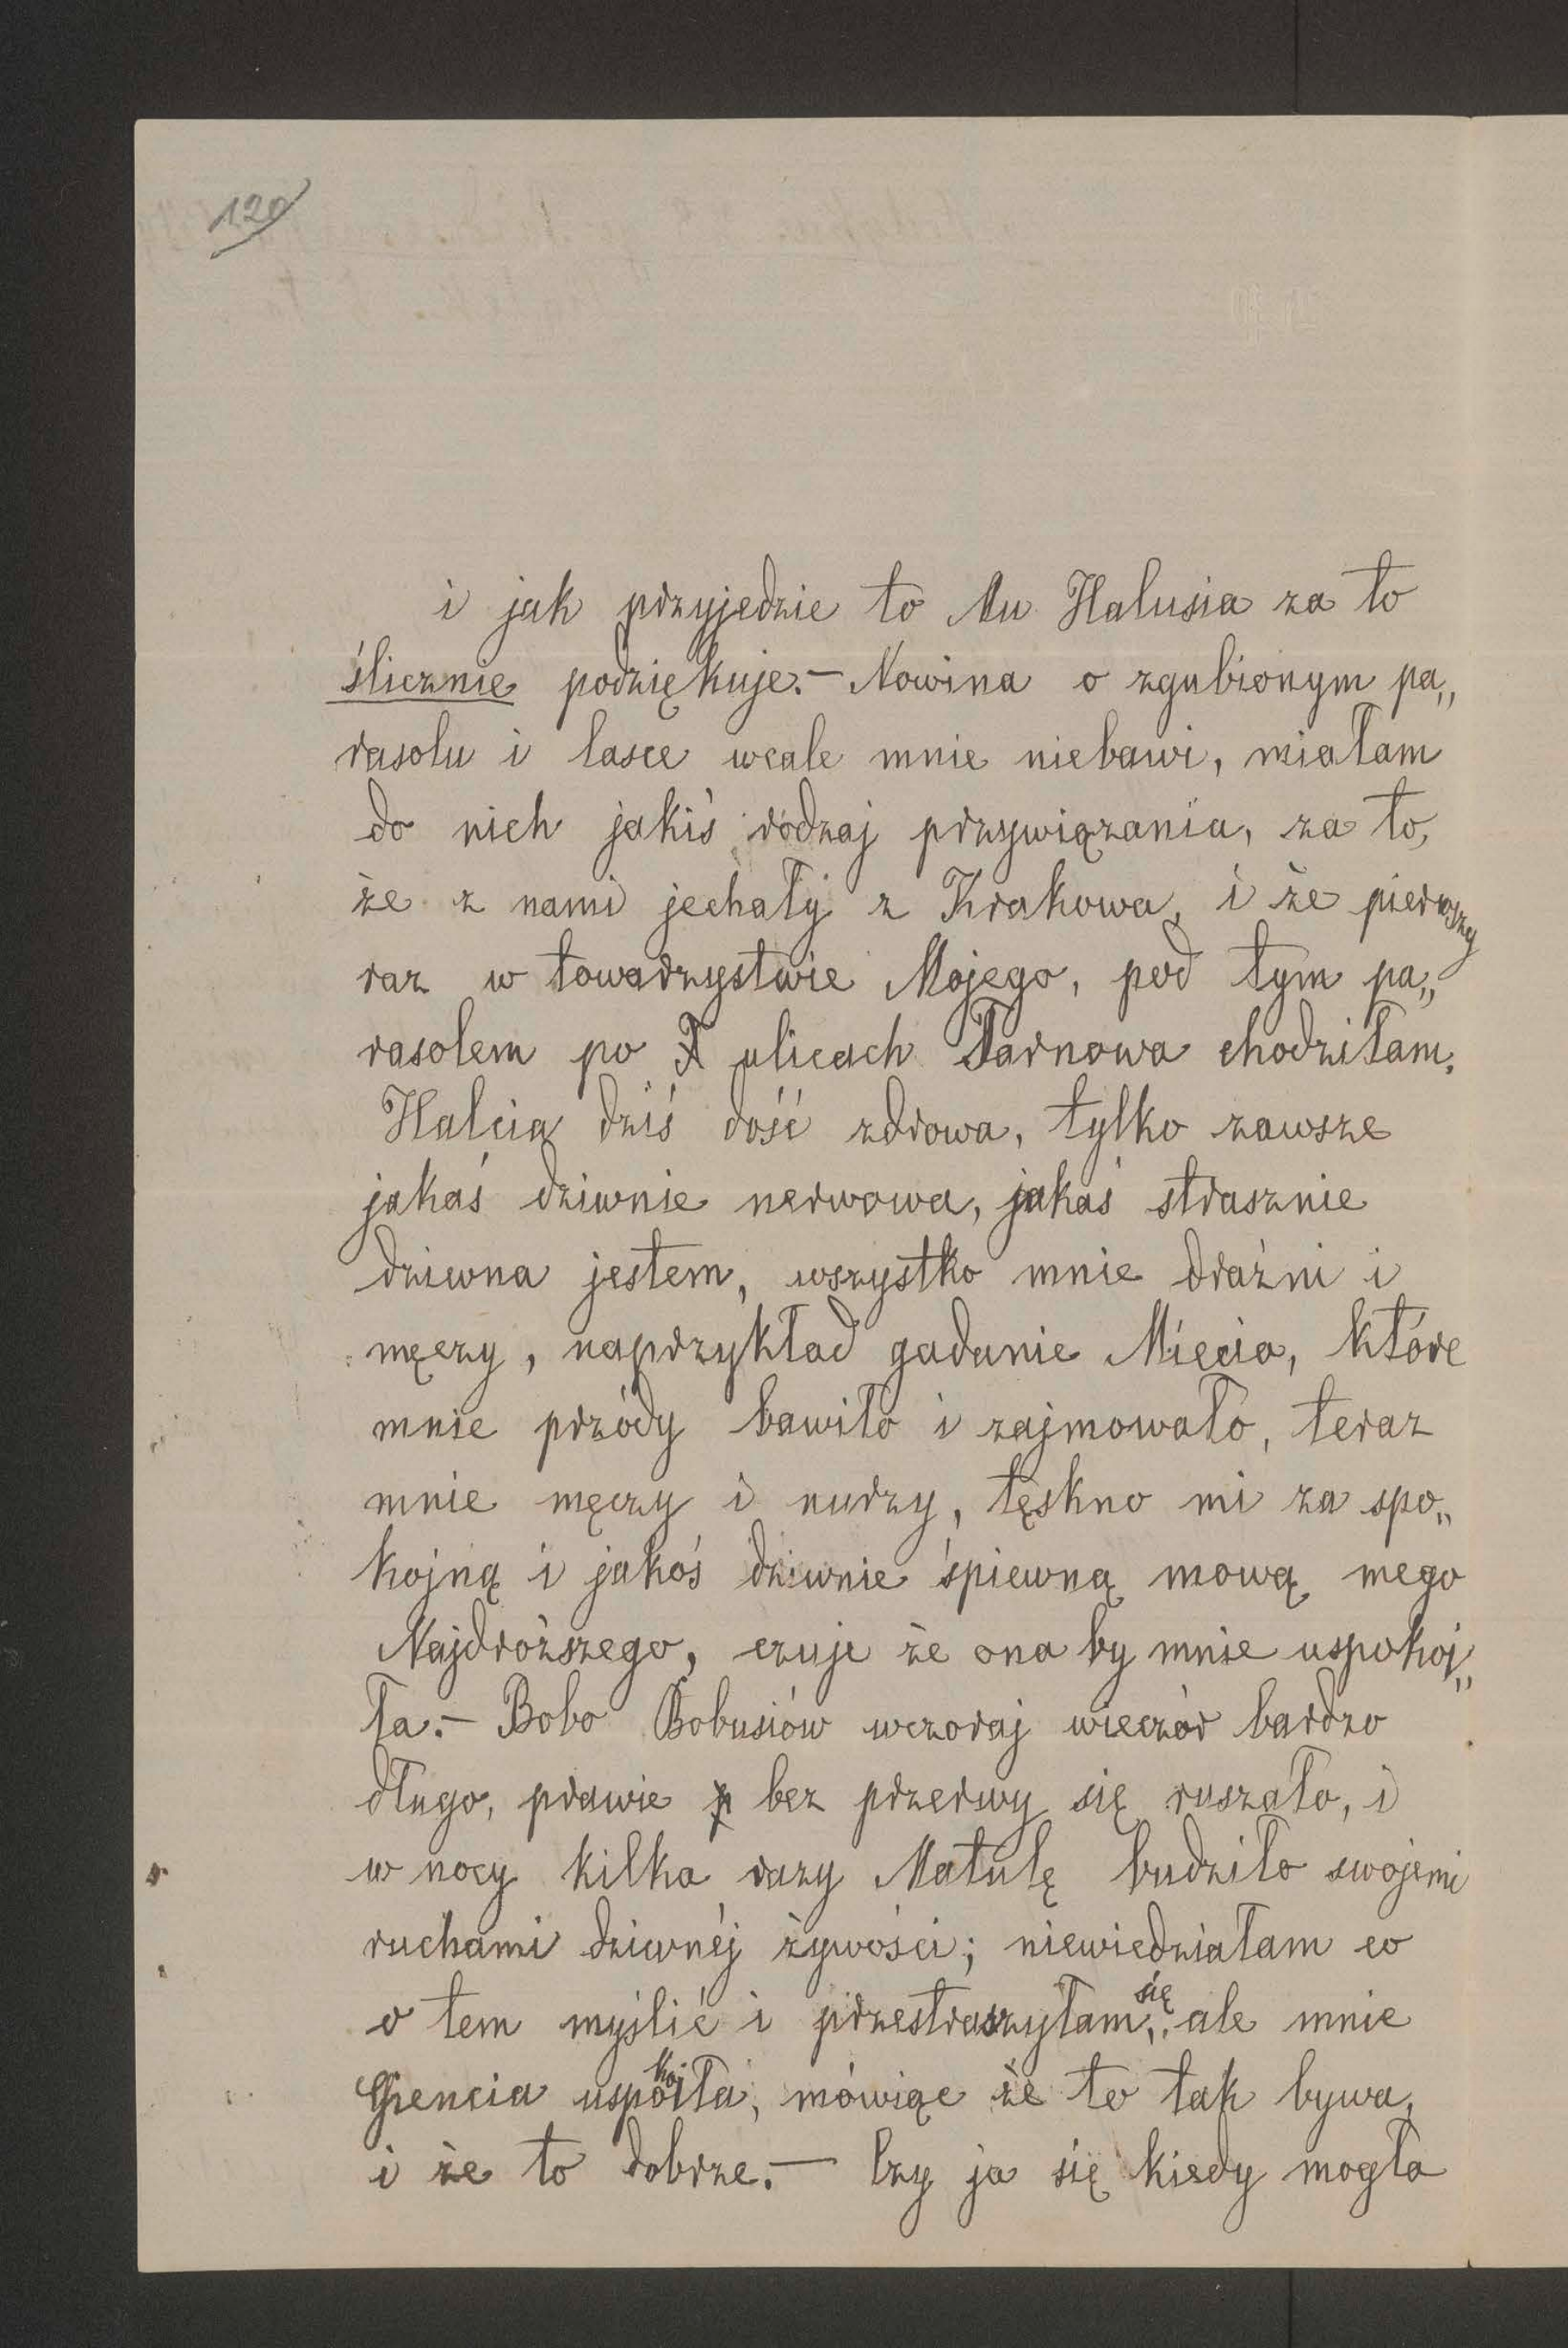 120
i jak przyjedzie to Mu Halusia za to
ślicznie podziękuje.- Nowina o zgubionym pa„
rasolu i lasce wcale mnie niebawi, miałam
do nich jakiś rodzaj przywiązania, za to,
że z nami jechały z Krakowa, i że pierwszy
raz w towarzystwie Mojego, pod tym pa„
rasolem po T ulicach Tarnowa chodziłam.
Halcia dziś dość zdrowa, tylko zawsze
jakaś dziwnie nerwowa, jakaś strasznie
dziwna jestem, wszystko mnie drażni i
męczy, naprzykład gadanie Miecia, które
mnie przódy bawiło i zajmowało, teraz
mnie męczy i nudzy, tęskno mi za spo„
kojną i jakoś dziwnie śpiewną mową mego
Najdroższego, czuje że ona by mnie uspokoj„
ła.- Bobo Bobusiów wczoraj wieczór bardzo
długo, prawie p bez przerwy się ruszało, i
w nocy kilka razy Matulę budziło swojemi
ruchami dziwnéj żywości; niewiedziałam co
o tem myślić i przestraszyłam się, ale mnie
Gencia uspokoiła, mówiąc że to tak bywa,
i że to dobrze.- Czy ja się kiedy mogła